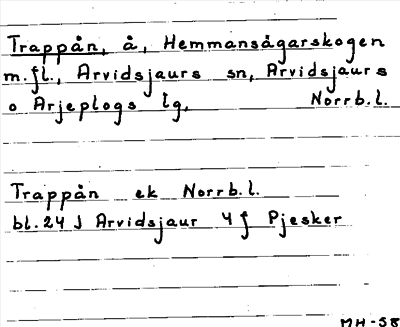 Trappån, å, Hemmansågarskogen
m.fl., Arvidsjaurs sn, Arvidsjaurs
o Arjeplogs lg, Norrb.l.
Trappån ek Norrb.l.
bl. 24 J Arvidsjaur 4 f Pjesker
MH-58